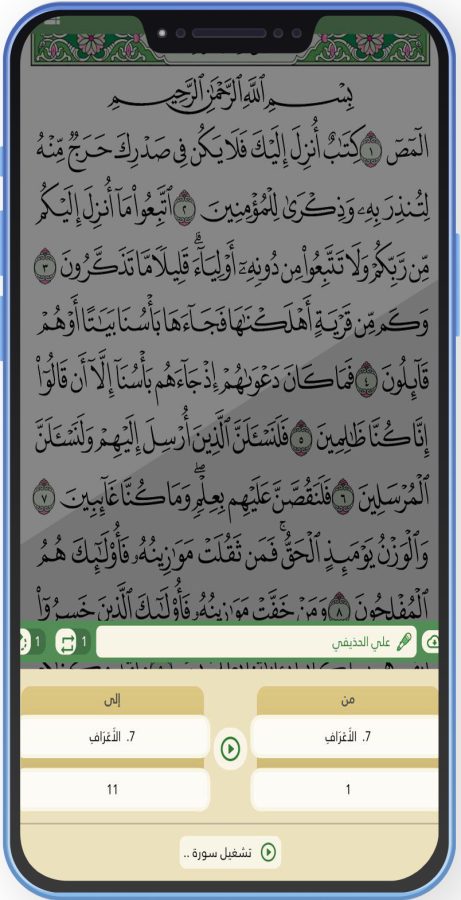 بِسْمِ ٱللَّهِ ٱلرَّحْمَٰنِ ٱلرَّحِيمِ
الٓمٓصٓ ١ كِتَٰبٌ أُنزِلَ إِلَيْكَ فَلَا يَكُن فِى صَدْرِكَ حَرَجٌ مِّنْهُ
لِتُنذِرَ بِهِۦ وَذِكْرَىٰ لِلْمُؤْمِنِينَ ٢ ٱتَّبِعُوا۟ مَآ أُنزِلَ إِلَيْكُم
مِّن رَّبِّكُمْ وَلَا تَتَّبِعُوا۟ مِن دُونِهِۦٓ أَوْلِيَآءَ ۗ قَلِيلًا مَّا تَذَكَّرُونَ ٣
وَكَم مِّن قَرْيَةٍ أَهْلَكْنَٰهَا فَجَآءَهَا بَأْسُنَا بَيَٰتًا أَوْ هُمْ
قَآئِلُونَ ٤ فَمَا كَانَ دَعْوَىٰهُمْ إِذْ جَآءَهُم بَأْسُنَآ إِلَّآ أَن قَالُوٓا۟
إِنَّا كُنَّا ظَٰلِمِينَ ٥ فَلَنَسْـَٔلَنَّ ٱلَّذِينَ أُرْسِلَ إِلَيْهِمْ وَلَنَسْـَٔلَنَّ
ٱلْمُرْسَلِينَ ٦ فَلَنَقُصَّنَّ عَلَيْهِم بِعِلْمٍ ۖ وَمَا كُنَّا غَآئِبِينَ ٧
وَٱلْوَزْنُ يَوْمَئِذٍ ٱلْحَقُّ ۚ فَمَن ثَقُلَتْ مَوَٰزِينُهُۥ فَأُو۟لَٰٓئِكَ هُمُ
ٱلْمُفْلِحُونَ ٨ وَمَنْ خَفَّتْ مَوَٰزِينُهُۥ فَأُو۟لَٰٓئِكَ ٱلَّذِينَ خَسِرُوٓا۟
علي الحذيفي 1 1
من إلى
7. الأَعْرَافِ 7. الأَعْرَافِ
1 11
تشغيل سورة ..